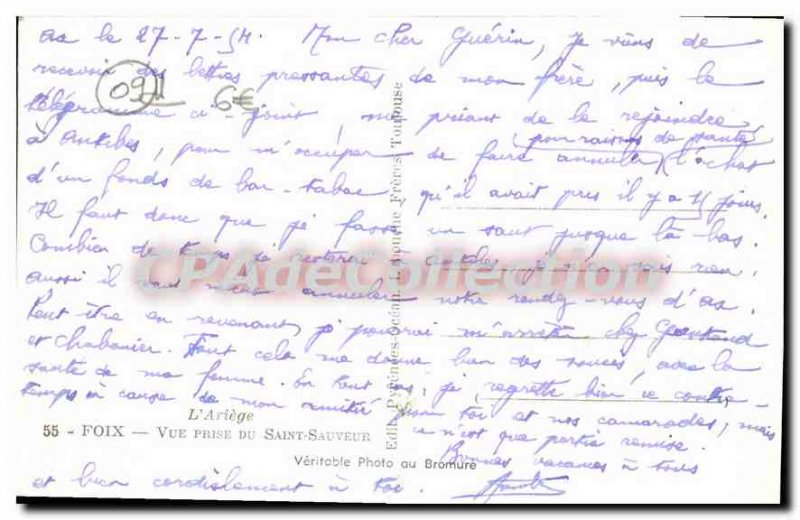 ax le 27-7-54. Mon cher Guérin, je viens de
recevoir des lettres pressantes de mon frère, puis le
télégramme ci-joint, me priant de le rejoindre
09 6€
(pour raisons de santé)
à Antibes, pour m'occuper de faire annuler l'achat
d'un fonds de bar-tabac qu'il avait pris il y a 11 jours.
Il faut donc que je fasse un saut jusque là-bas.
Combien de temps je resterai - - je n'en sais rien,
aussi il annuler notre rendez-vous d'ax.
Peut être en revenant, je pourrai m'arrêter chez
et Chabanier. Tout cela me donne bien des soucis, avec la
santé de ma femme. En tout cas, je regrette bien ce contre-
temps à cause de mon amitié pour toi et nos camarades, mais
ce n'est que partie remise.
Bonnes vacances à tous
et bien cordialement à toi.
L'Ariège
55 - FOIX — VUE PRISE DU SAINT-SAUVEUR
Véritable Photo au Bromure
Edit. Pyrénées-Océan, Labouche Frères Toulouse
CPAdeCollection